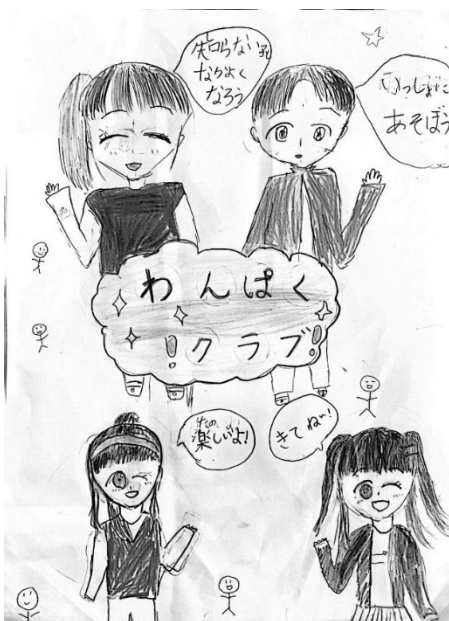 知らない子
なかよく
なろう
いっしょに
あそぼう
わんぱく
!クラブ!
楽しいよ!
きてね!